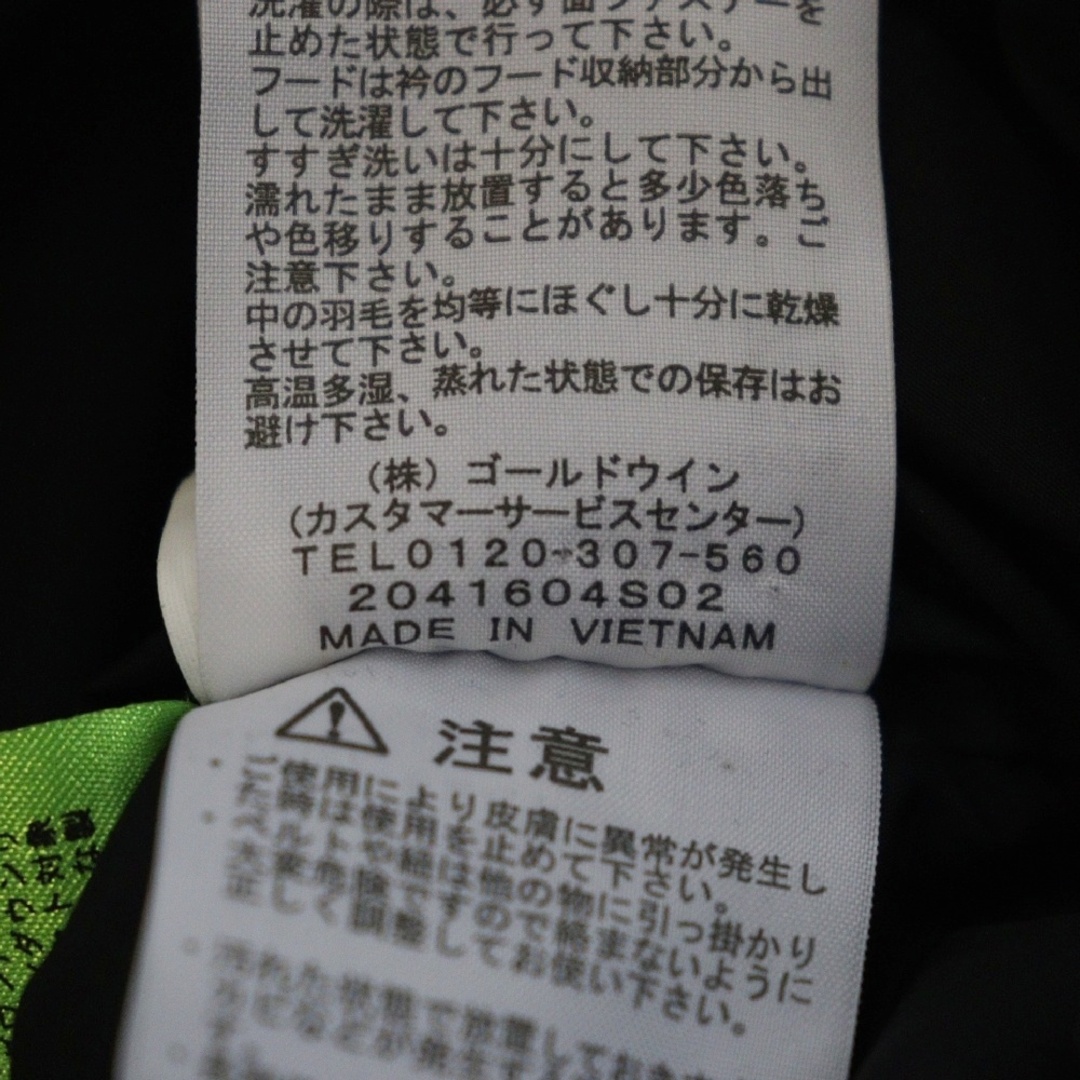 洗濯の際は、必ず面ファスナーを
止めた状態で行って下さい。
フードは衿のフード収納部分から出
して洗濯して下さい。
すすぎ洗いは十分にして下さい。
濡れたまま放置すると多少色落ち
や色移りすることがあります。ご
注意下さい。
中の羽毛を均等にほぐし十分に乾燥
させて下さい。
高温多湿、蒸れた状態での保存はお
避け下さい。
(株)ゴールドウイン
(カスタマーサービスセンター)
TEL0120-307-560
2041604S02
MADE IN VIETNAM
注意
・ご使用により皮膚に異常が発生し
た時は使用を止めて下さい。
・ベルトや紐は他の物に引っ掛かり
大変危険ですので絡まないように
正しく調整してお使い下さい。
・汚れた状態で放置しておき
カビなどが発生す